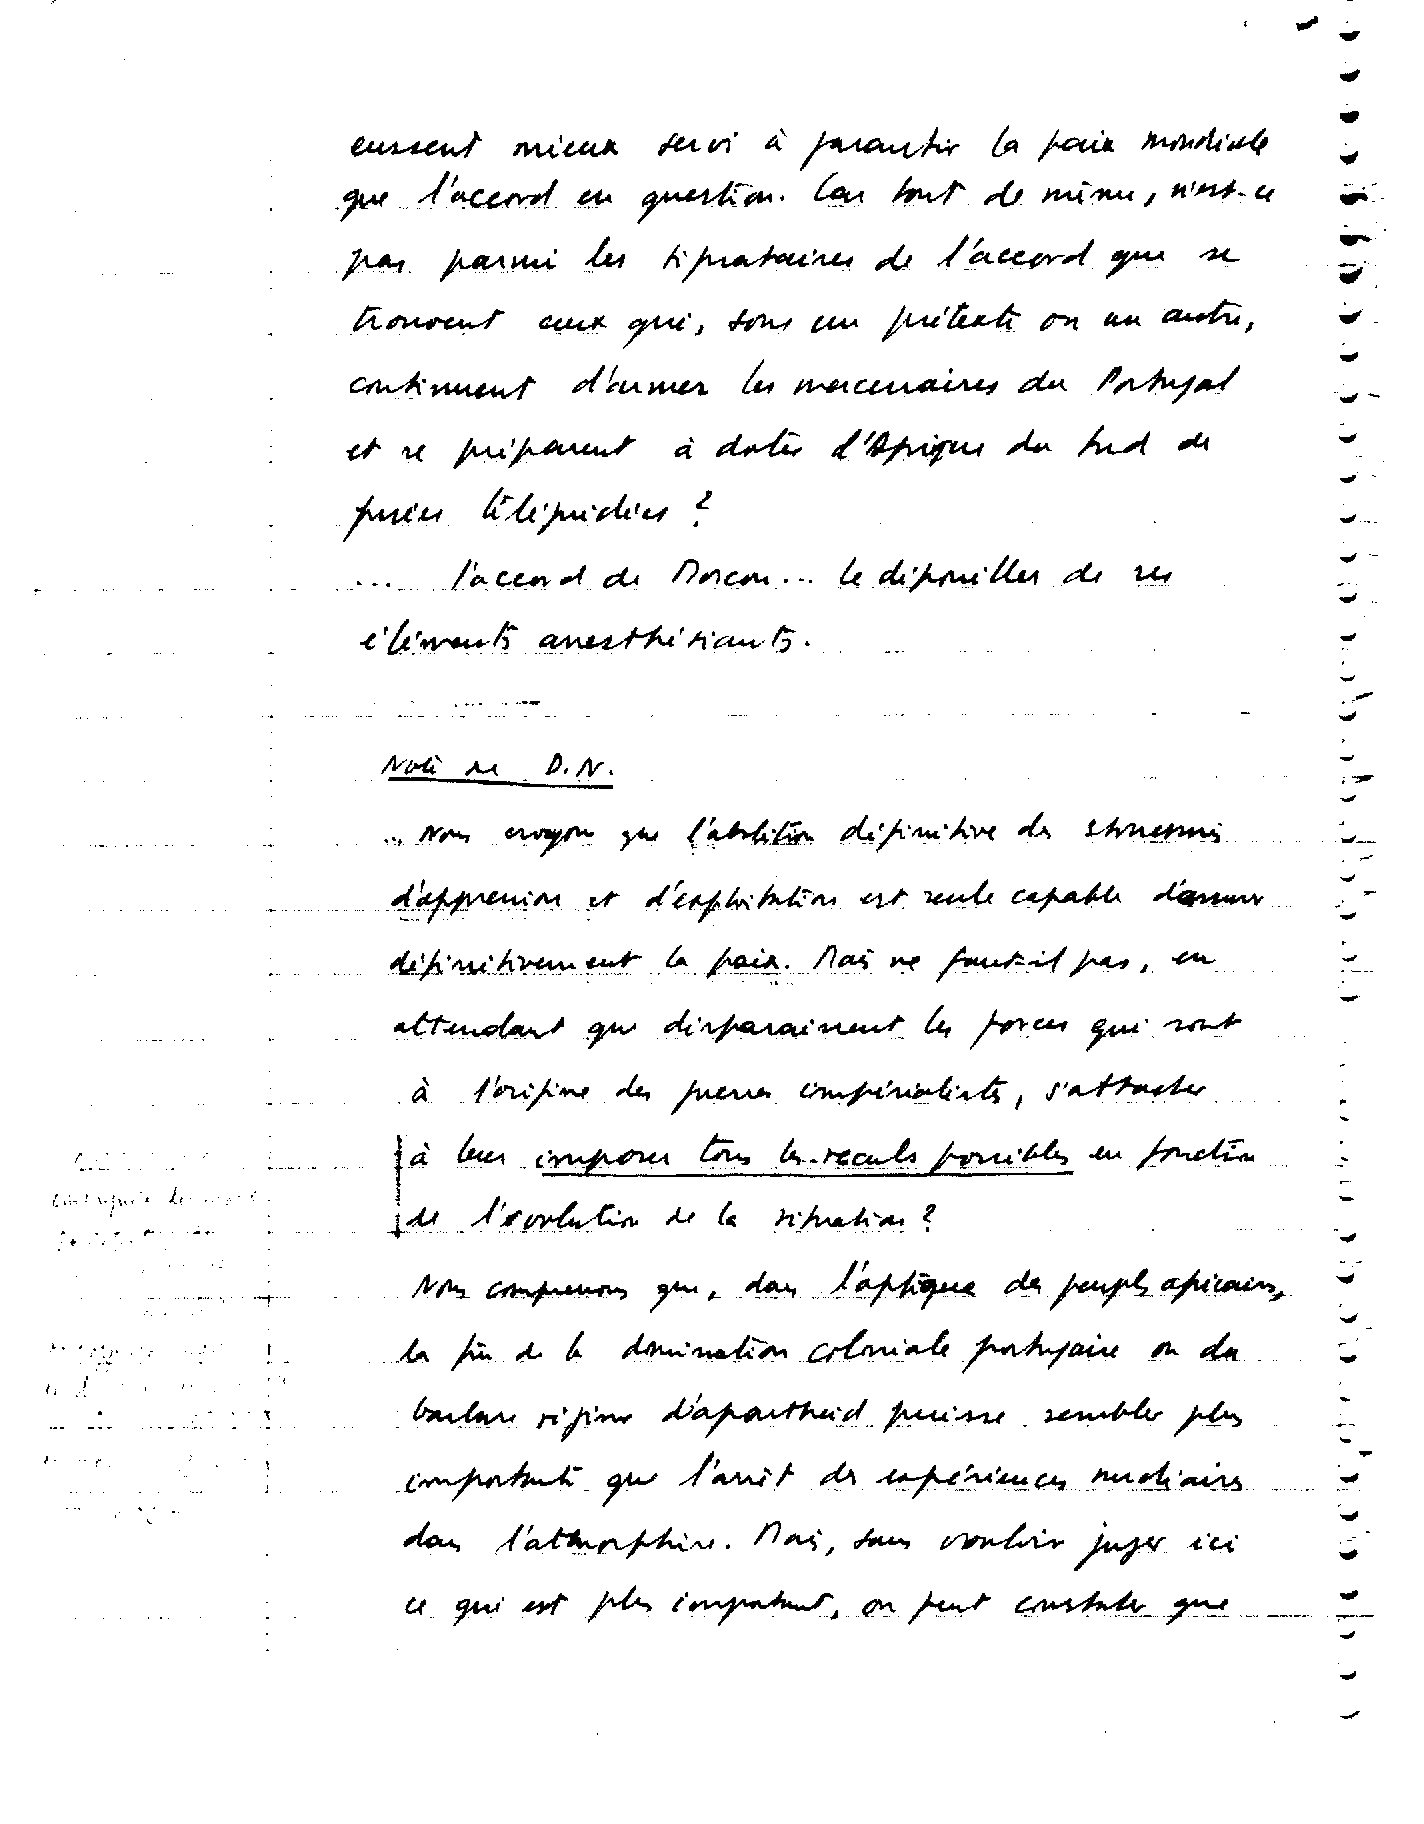 eussent mieux servi à garantir la paix mondiale
que l'accord en question. Car tout de même, n'est-ce
pas parmi les signataires de l'accord que se
trouvent ceux qui, sous un prétexte ou un autre,
continuent d'armer les mercenaires du Portugal
et se préparent à doter l'Afrique du Sud de
fusées téléguidées ?
... l'accord de Moscou... le dépouiller de ses
éléments anesthésiants.
Note de D.N.
... Nous croyons que l'abolition définitive des structures
d'oppression et d'exploitation est seule capable d'assurer
définitivement la paix. Mais ne faut-il pas, en
attendant que disparaissent les forces qui sont
à l'origine des guerres impérialistes, s'attacher
à leur imposer tous les reculs possibles en fonction
de l'évolution de la situation ?
Nous comprenons que, dans l'optique des peuples africains,
la fin de la domination coloniale portugaise ou du
barbare régime d'apartheid puisse sembler plus
importante que l'arrêt des expériences nucléaires
dans l'atmosphère. Mais, sans vouloir juger ici
ce qui est plus important, on peut constater que